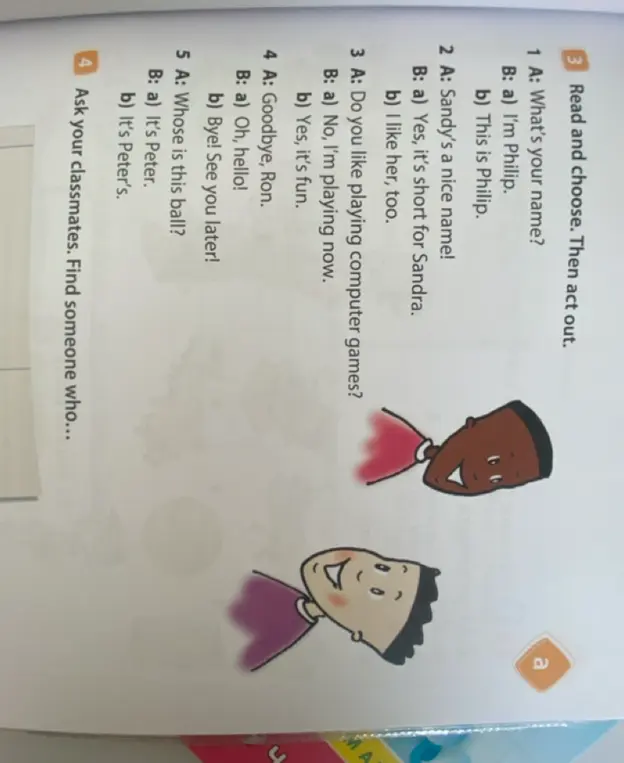 3 Read and choose. Then act out.
1 A: What's your name?
B: a) I'm Philip.
b) This is Philip.
2 A: Sandy's a nice name!
B: a) Yes, it's short for Sandra.
b) I like her, too.
3 A: Do you like playing computer games?
B: a) No, I'm playing now.
b) Yes, it's fun.
4 A: Goodbye, Ron.
B: a) Oh, hello!
b) Bye! See you later!
5 A: Whose is this ball?
B: a) It's Peter.
b) It's Peter's.
4 Ask your classmates. Find someone who...
a